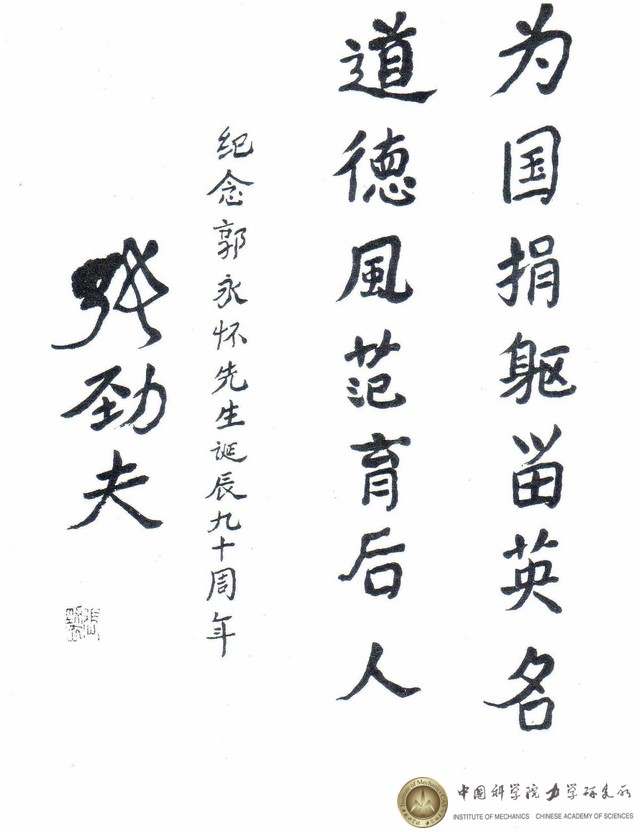 为国捐躯畄英名
道德風范育后人
纪念郭永怀先生诞辰九十周年
张劲夫
中国科学院力学研究所
INSTITUTE OF MECHANICS CHINESE ACADEMY OF SCIENCES